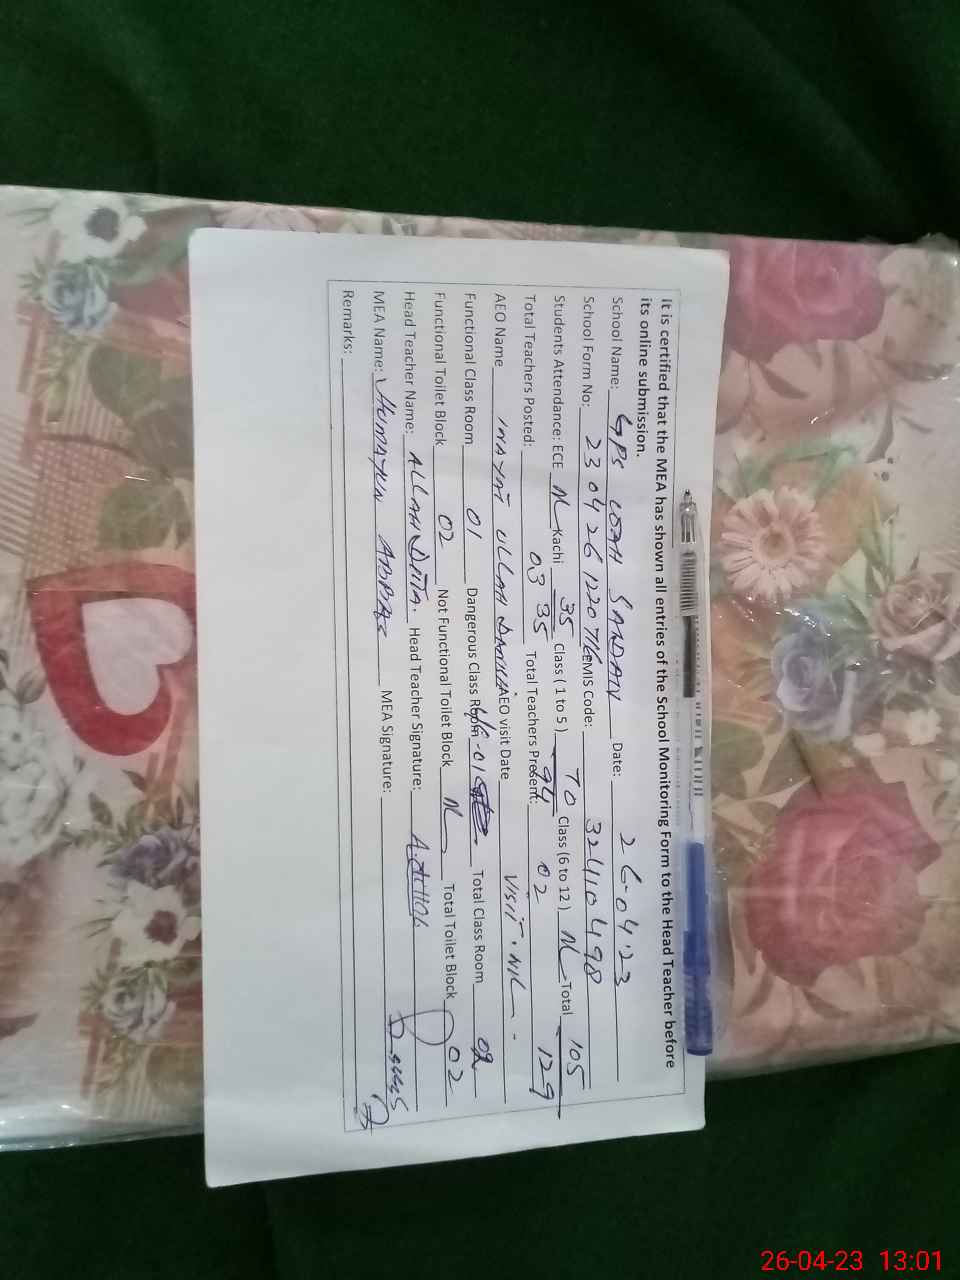 It is certified that the MEA has shown all entries of the School Monitoring Form to the Head Teacher before
its online submission.
School Name: GPS SANDAN Date: 26-04-23
School Form No: 230426 EMIS Code: 32410498
Students Attendance: ECE NL Kachi 35/35 Class (1 to 5) 70/94 Class (6 to 12) NL Total 105/129
Total Teachers Posted: 03 Total Teachers Present: 02
AEO Name INAYIT ULLAH AEO visit Date VISIT. NIL.
Functional Class Room 01 Dangerous Class Room 01 Total Class Room 02
Functional Toilet Block 02 Not Functional Toilet Block NL Total Toilet Block 02
Head Teacher Name: ALLAH DITTA. Head Teacher Signature:
MEA Name: HUMAYUN ABBAS MEA Signature:
Remarks:
26-04-23 13:01